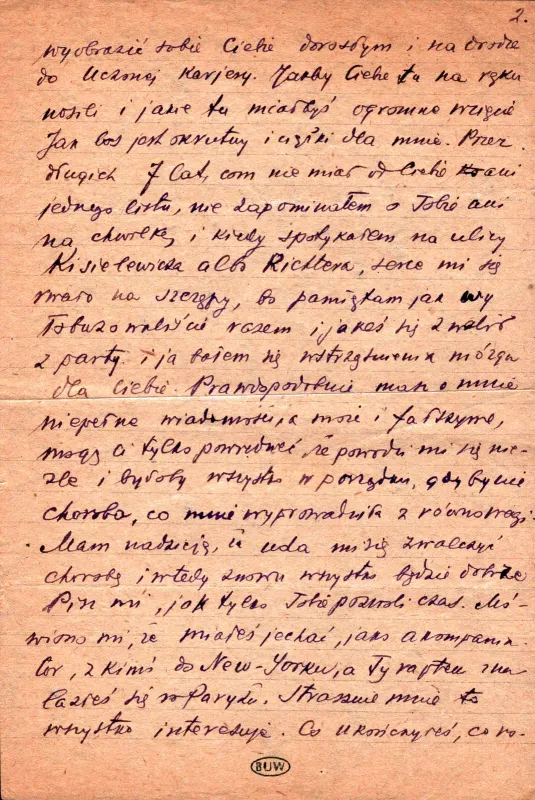 2.
wyobrazić sobie Ciebie dorosłym i na drodze
do Uczonej Karjery. Jakby Ciebie tu na ręku
nosili i jakie tu miałbyś ogromne wzięcie
Jak los jest okrutny i ciężki dla mnie. Przez
długich 7 lat, com nie miał od Ciebie ani
jednego listu, nie zapominałem o Tobie ani
na chwilkę i kiedy spotykałem na ulicy
Kisielewicza albo Richtera, serce mi się
rwało na szczępy, bo pamiętam jak wy
łobuzowaliście razem i jakeś się zwalił
z party i ja bałem się wstrząśnienia mózgu
dla Ciebie. Prawdopodobnie masz o mnie
niepełne wiadomości, a może i fałszywe,
mogę Ci tylko powiedzieć, że powodzi mi się nie-
źle i byłoby wszystko w porządku, gdyby nie
choroba, co mnie wyprowadziła z równowagi.
Mam nadzieję, że uda mi się zwalczyć
chorobę i wtedy znowu wszystko będzie dobrze
Pisz mi, jak tylko Tobie pozwoli czas. Mó-
wiono mi, że miałeś jechać, jako akompania-
tor, z kimś do New-Yorku, a Ty raptem zna-
lazłeś się w Paryżu. Strasznie mnie to
wszystko interesuje. Co ukończyłeś, co ro-
BUW